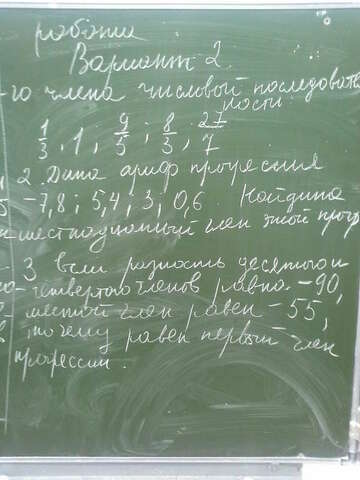 работы
Вариант 2.
-го члена числовой последователь
ности
1/3, 1, 9/5; 8/3; 27/7
2. Дана ариф прогрессия
-7,8; 5,4; 3; 0,6. Найдите
член этой прогр
3 если разность десятого и
четвертого членов равна -90,
шестой член равен -55,
почему равен первый член
прогрессии.